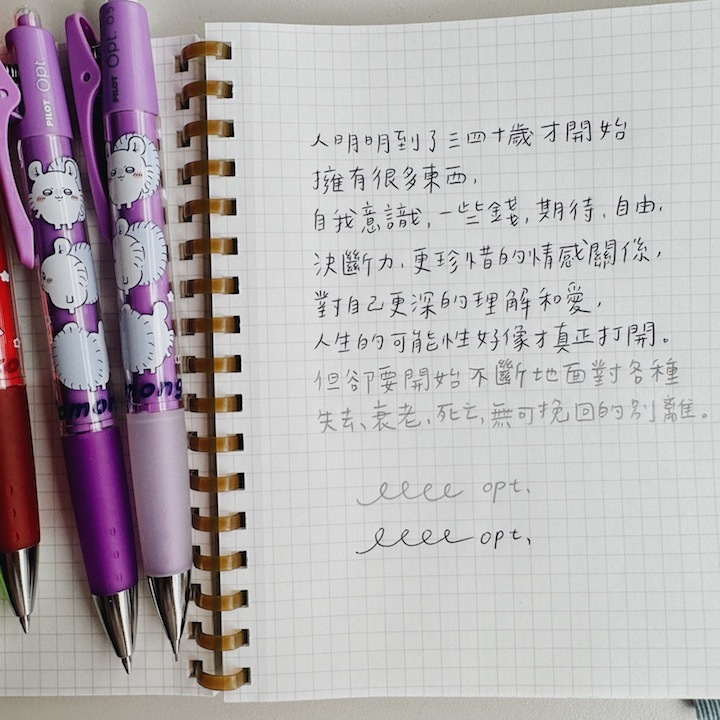 PILOT Opt.
PILOT Opt.
人明明到了三四十歲才開始
擁有很多東西,
自我意識,一些錢,期待,自由,
決斷力,更珍惜的情感關係,
對自己更深的理解和愛,
人生的可能性好像才真正打開。
但卻要開始不斷地面對各種
失去、衰老、死亡,無可挽回的別離。
opt.
opt.